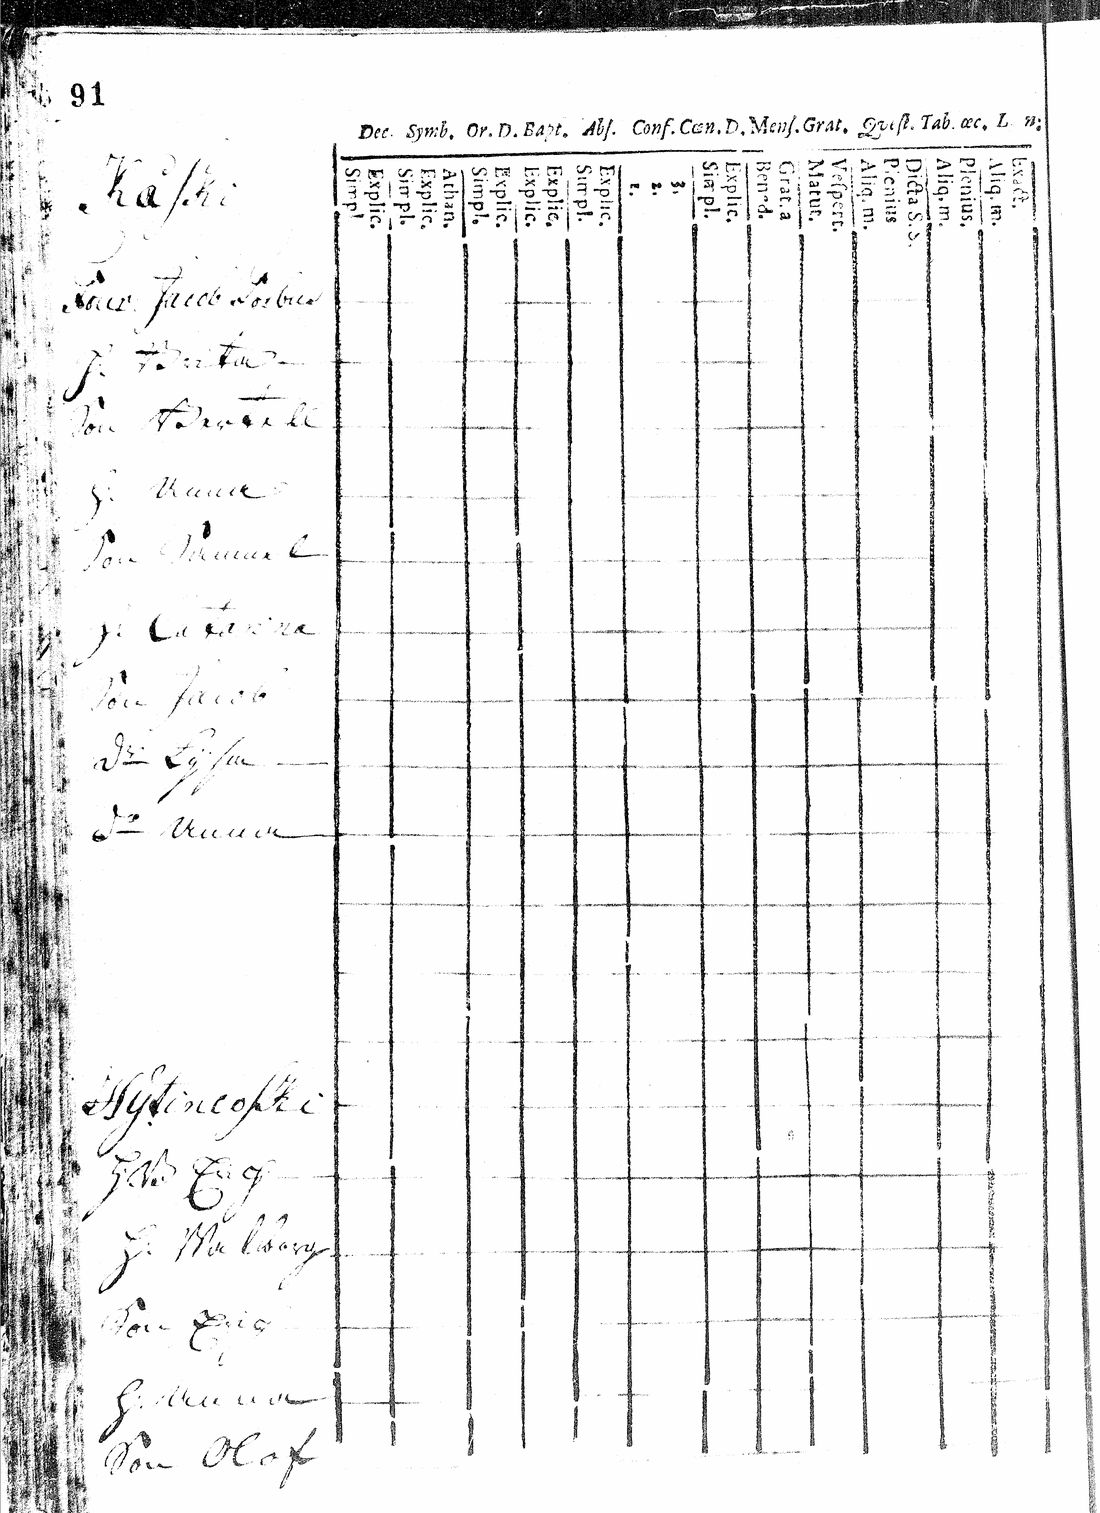 91
Dec. Symb. Or. D. Bapt. Abs. Conf. Cœn. D. Mens. Grat. Quæst. Tab. œc. L n:
Simpl. Explic. Simpl. Explic. Athan. Simpl. Explic. Explic. Explic. Simpl. Explic. 1. 2. 3. Simpl. Explic. Bened. Grat. a Matut. Vespert. Aliq. m. Plenius Dicta S. S. Aliq. m. Plenius. Aliq. m. Exact.
Kaski
Jacob
H. Brita
Son Bertell
H. Anna
Son Samuel
H. Catarina
Son Jacob
Dr Lysa
Dr Anna
Hytincoski
Eric
H. Walborg
Son Eric
H. Anna
Son Olof